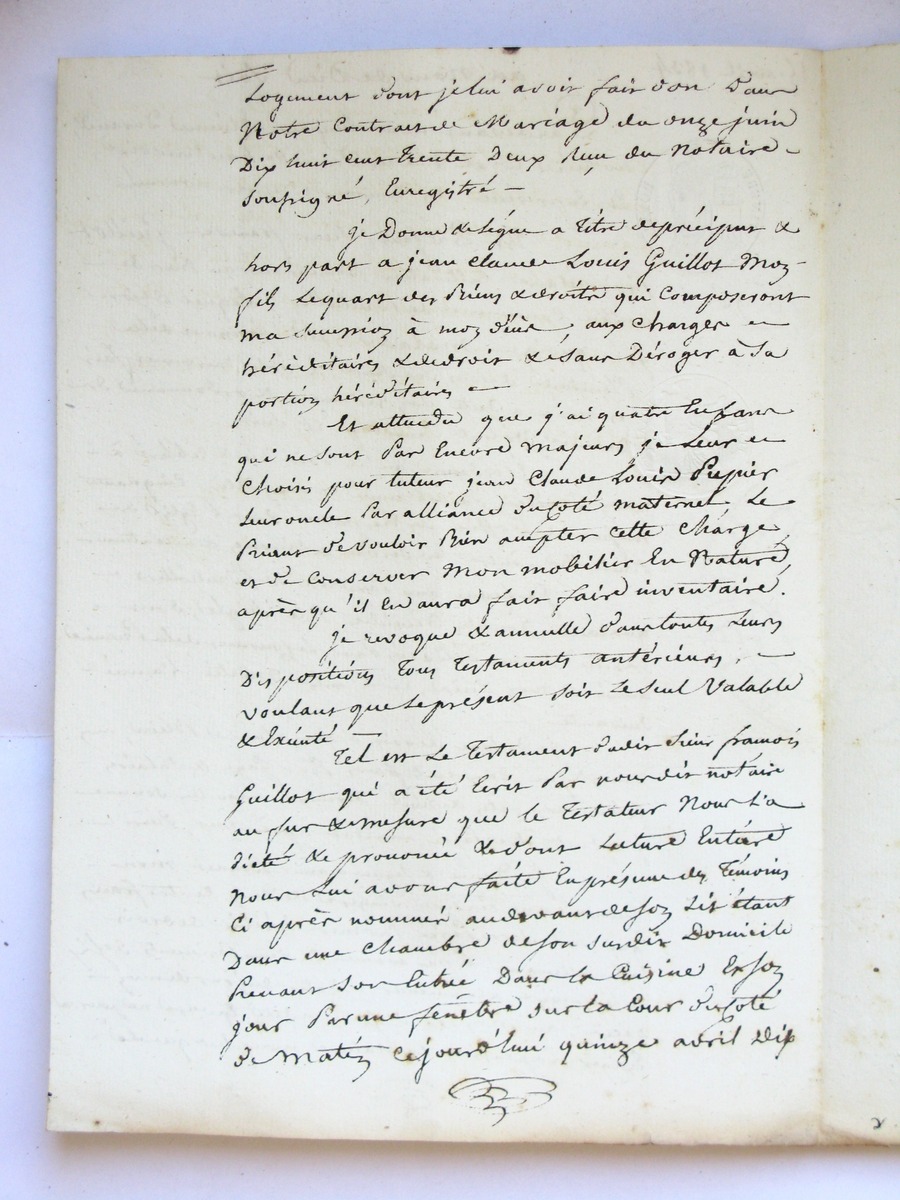 Logement dont je lui avoit fait don Dans
Notre Contract de Mariage du onze juin
Dix huit cent trente Deux Reçu du Notaire
soussigné, Enregistré —
je Donne & légue a titre de préciput &
hors part a jean Claude Louis Guillot Mon
fils Le quart des Biens & droits qui Composeront
ma succession à mon décès, aux Charges
héréditaires & de droit & sans Déroger à sa
portion héréditaires
Et attendu que j'ai quatre Enfans
qui ne sont Pas Encore majeurs je Leur
Choisis pour tuteur jean Claude Louis Pupier
Leur oncle Par alliance du Coté maternel, Le
Priant de vouloir Bien accepter cette Charge,
et de Conserver Mon mobilier En Nature,
après qu'il En aura fait faire inventaire.
je revoque & annulle dans toutes leurs
Dispositions Tous Testaments antérieurs, —
voulant que Le présent soit Le seul Valable
& Exécuté —
Tel est Le Testament dudit sieur francois
Guillot qui a été Ecrit Par nous dit notaire
au fur & mesure que le Testateur Nous L'a
dicté & prononcé & dont Lecture Entière
Nous Lui avons faite En présence des Témoins
Ci après nommés au devant de son Lit étant
Dans une Chambre de son susdit Domicile
Prenant son Entrée Dans la Cuisine & son
jour Par une fenêtre sur la Cour du Coté
de Matin Ce jourd'hui quinze avril Dix